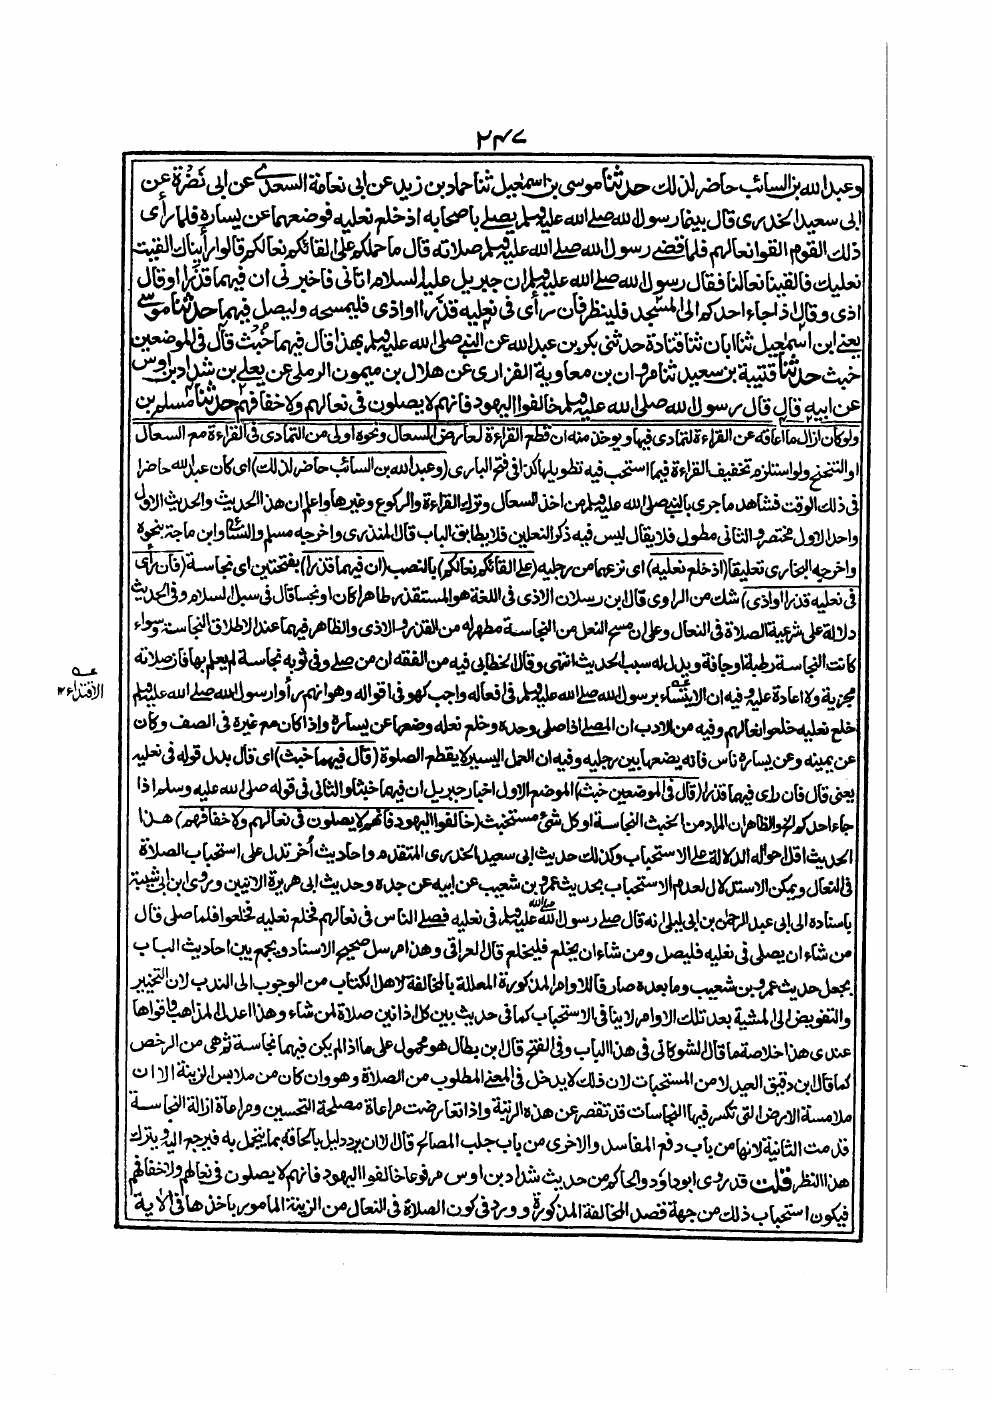 ٢٤٧
وعبد الله بن السائب حاضر لذلك حدثنا موسى بن اسمعيل ثنا حماد بن زيد عن ابى نعامة السعدى عن ابى نضرة عن
ابى سعيد الخدرى قال بينما رسول الله صلى الله عليه وسلم يصلى باصحابه اذ خلع نعليه فوضعهما عن يساره فلما رأى
ذلك القوم القوا نعالهم فلما قضى رسول الله صلى الله عليه وسلم صلاته قال ما حملكم على القائكم نعالكم قالوا رأيناك القيت
نعليك فالقينا نعالنا فقال رسول الله صلى الله عليه وسلم ان جبريل عليه السلام اتانى فاخبرنى ان فيهما قذرا او قال
اذى وقال اذا جاء احدكم الى المسجد فلينظر فان رأى فى نعليه قذرا او اذى فليمسحه وليصل فيهما حدثنا موسى
يعنى ابن اسمعيل ثنا ابان ثنا قتادة حدثنى بكر بن عبد الله عن النبى صلى الله عليه وسلم بهذا قال فيهما خبث قال فى الموضعين
خبث حدثنا قتيبة بن سعيد ثنا مروان بن معاوية الفزارى عن هلال بن ميمون الرملى عن يعلى بن شداد بن اوس
عن ابيه قال قال رسول الله صلى الله عليه وسلم خالفوا اليهود فانهم لا يصلون فى نعالهم ولا خفافهم حدثنا مسلم بن
ولو كان ازال ما اعاقه عن القراءة لتمادى فيها ويوخذ منه ان قطع القراءة لعارض السعال ونحوه اولى من التمادى فى القراءة مع السعال
او التنحنح ولو استلزم تخفيف القراءة فيما استحب فيه تطويلها كذا فى فتح البارى (وعبد الله بن السائب حاضر لذلك) اى كان عبد الله حاضرا
فى ذلك الوقت فشاهد ما جرى بالنبى صلى الله عليه وسلم من اخذ السعال وترك القراءة والركوع وغيرها واعلم ان هذا الحديث والحديث الاول
واحد الاول مختصر والثانى مطول فلا يقال ليس فيه ذكر النعلين فلا يطابق الباب قال المنذرى واخرجه مسلم والنسائى وابن ماجة بنحوه
واخرجه البخارى تعليقا (اذ خلع نعليه) اى نزعهما من رجليه (على القائكم نعالكم) بالنصب (ان فيهما قذرا) بفتحتين اى نجاسة (فان رأى
فى نعليه قذرا او اذى) شك من الراوى قال ابن رسلان الاذى فى اللغة هو المستقذر طاهرا كان او نجسا قال فى سبل السلام وفى الحديث
دلالة على شرعية الصلاة فى النعال وعلى ان مسح النعل من النجاسة مطهر له من القذر والاذى والظاهر فيهما عند الاطلاق النجاسة وسواء
كانت النجاسة رطبة او جافة ويدل له سبب الحديث انتهى وقال الخطابى فيه من الفقه ان من صلى وفى ثوبه نجاسة لم يعلم بها فان صلاته
مجزية ولا اعادة عليه وفيه ان الايتساء برسول الله صلى الله عليه وسلم فى افعاله واجب كهو فى اقواله وهو انهم رأوا رسول الله صلى الله عليه وسلم
خلع نعليه خلعوا نعالهم وفيه من الادب ان المصلى اذا صلى وحده وخلع نعله وضعها عن يساره واذا كان مع غيره فى الصف وكان
عن يمينه وعن يساره ناس فانه يضعها بين رجليه وفيه ان العمل اليسير لا يقطع الصلوة (قال فيهما خبث) اى قال بدل قوله فى نعليه
يعنى قال فان راى فيهما قذرا (قال فى الموضعين خبث) الموضع الاول اخبار جبريل ان فيهما خبثا والثانى فى قوله صلى الله عليه وسلم اذا
جاء احدكم الخ والظاهر ان المراد من الخبث النجاسة او كل شئ مستخبث (خالفوا اليهود فانهم لا يصلون فى نعالهم ولا خفافهم) هذا
الحديث اقل احواله الدلالة على الاستحباب وكذلك حديث ابى سعيد الخدرى المتقدم واحاديث أخر تدل على استحباب الصلاة
فى النعال ويمكن الاستدلال لعدم الاستحباب بحديث عمرو بن شعيب عن ابيه عن جده وحديث ابى هريرة الاتيين وروى ابن ابى شيبة
باسناده الى ابى عبد الرحمن بن ابى ليلى انه قال صلى رسول الله صلى الله عليه وسلم فى نعليه فصلى الناس فى نعالهم فخلع نعليه فخلعوا فلما صلى قال
من شاء ان يصلى فى نعليه فليصل ومن شاء ان يخلع فليخلع قال العراقى وهذا مرسل صحيح الاسناد ويجمع بين احاديث الباب
بجعل حديث عمرو بن شعيب وما بعده صارفا للاوامر المذكورة المعللة بالمخالفة لاهل الكتاب من الوجوب الى الندب لان التخيير
والتفويض الى المشية بعد تلك الاوامر لا ينافى الاستحباب كما فى حديث بين كل اذانين صلاة لمن شاء وهذا اعدل المذاهب واقواها
عندى هذا خلاصة ما قال الشوكانى فى هذا الباب وفى الفتح قال ابن بطال هو محمول على ما اذا لم يكن فيهما نجاسة ثم هى من الرخص
كما قال ابن دقيق العيد لا من المستحبات لان ذلك لا يدخل فى المعنى المطلوب من الصلاة وهو وان كان من ملابس الزينة الا ان
ملامسة الارض التى تكثر فيها النجاسات قد تقصر عن هذه الرتبة واذا تعارضت مراعاة مصلحة التحسين ومراعاة ازالة النجاسة
قدمت الثانية لانها من باب دفع المفاسد والاخرى من باب جلب المصالح قال الا ان يرد دليل بالحاقه بما يتجمل به فيرجع اليه ويترك
هذا النظر قلت قد روى ابو داؤد والحاكم من حديث شداد بن اوس مرفوعا خالفوا اليهود فانهم لا يصلون فى نعالهم ولا خفافهم
فيكون استحباب ذلك من جهة قصد المخالفة المذكورة وورد فى كون الصلاة فى النعال من الزينة المامور باخذها فى الآية
عـه
الاقتداء ١٢